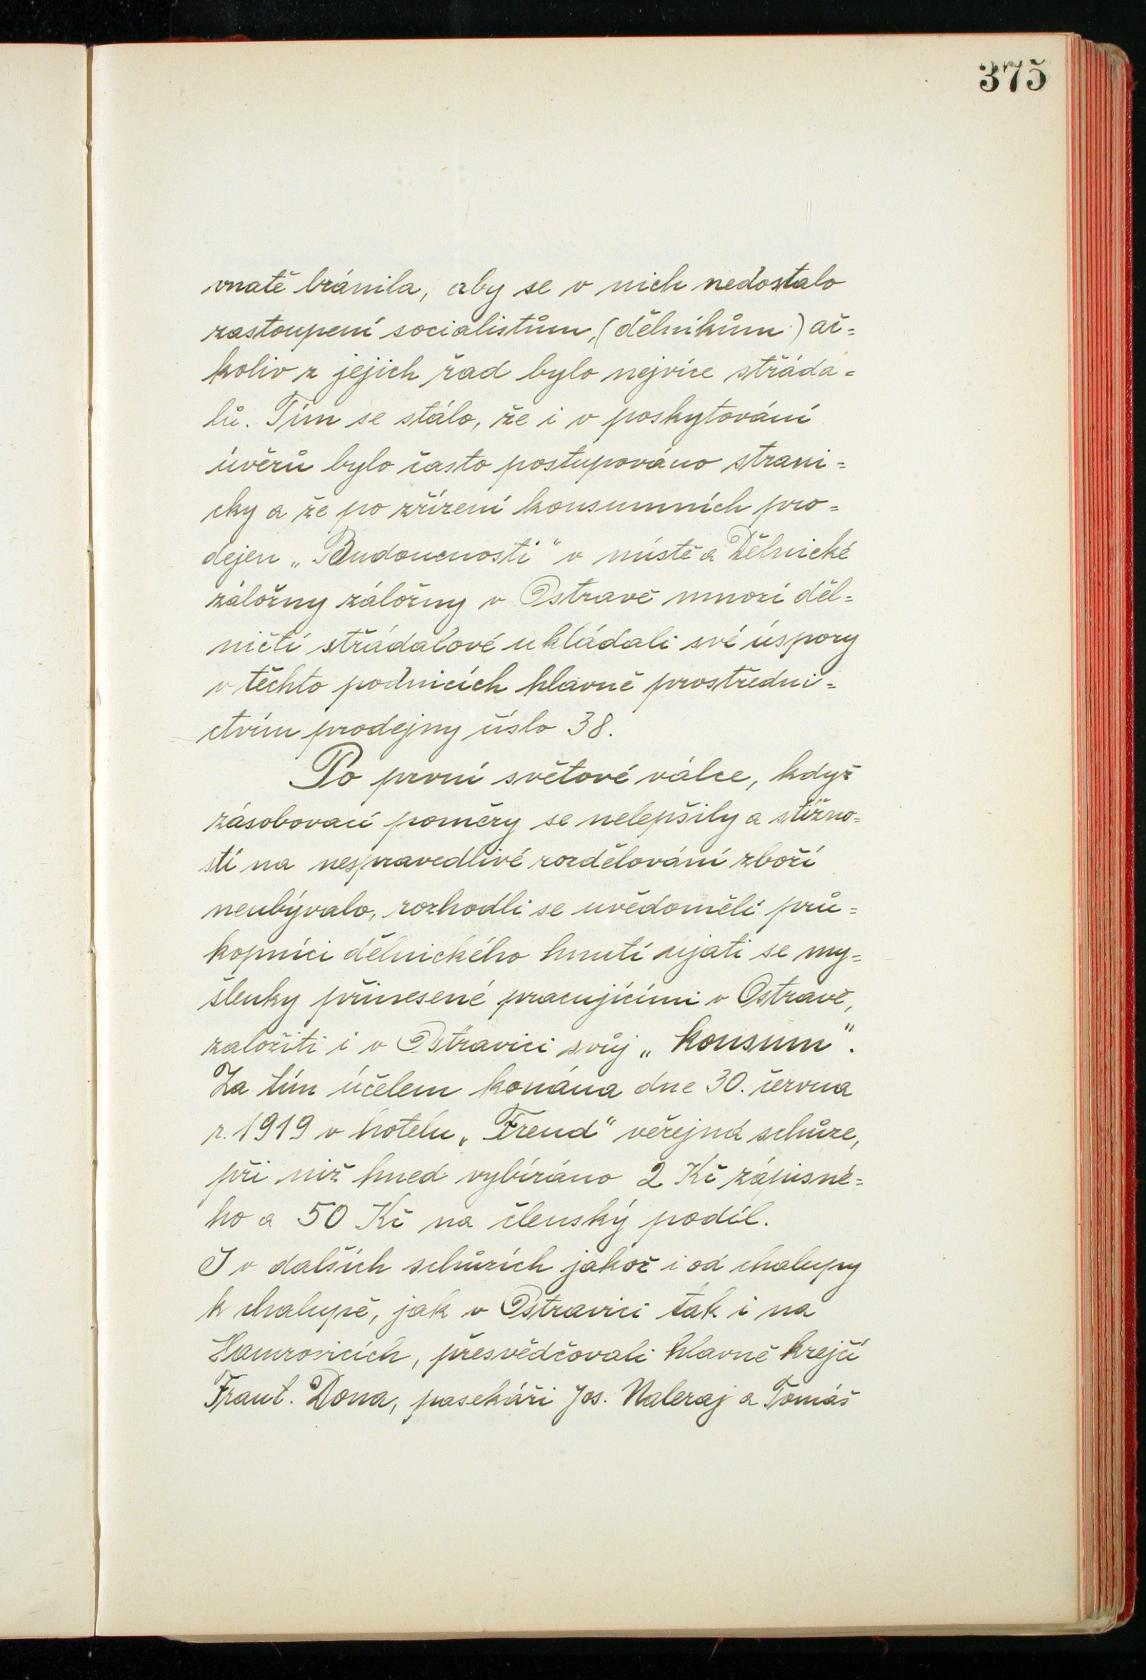 375
vnatě bránila, aby se v nich nedostalo
zastoupení socialistům, (dělníkům) ač=
koliv z jejich řad bylo nejvíce střáda=
lů. Tím se stálo, že i v poskytování
úvěrů bylo často postupováno strani=
cky a že po zřízení konsumních pro=
dejen „Budoucnosti" v místě a Dělnické
záložny záložny v Ostravě mnozí děl=
ničtí střádalové ukládali své úspory
v těchto podnicích hlavně prostředni=
ctvím prodejny číslo 38.
Po první světové válce, když
zásobovací poměry se nelepšily a stížno=
stí na nespravedlivé rozdělování zboží
neubývalo, rozhodli se uvědomělí prů=
kopníci dělnického hnutí ujati se my=
šlenky přinesené pracujícími v Ostravě,
založiti i v Ostravici svůj „konsum".
Za tím účelem konána dne 30. června
r. 1919 v hotelu „Freud" veřejná schůze,
při níž hned vybíráno 2 Kč zápisné=
ho a 50 Kč na členský podíl.
I v dalších schůzích jakož i od chalupy
k chalupě, jak v Ostravici tak i na
Hamrovicích, přesvědčovali hlavně krejčí
Frant. Dona, pasekáři Jos. Naleraj a Tomáš